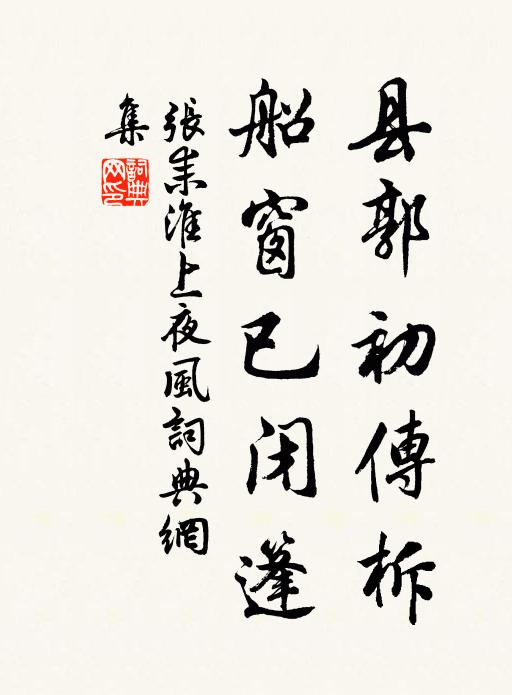 县郭初傳柝
船窗已闭篷
張耒淮上夜風詞典網
集
詞典网印